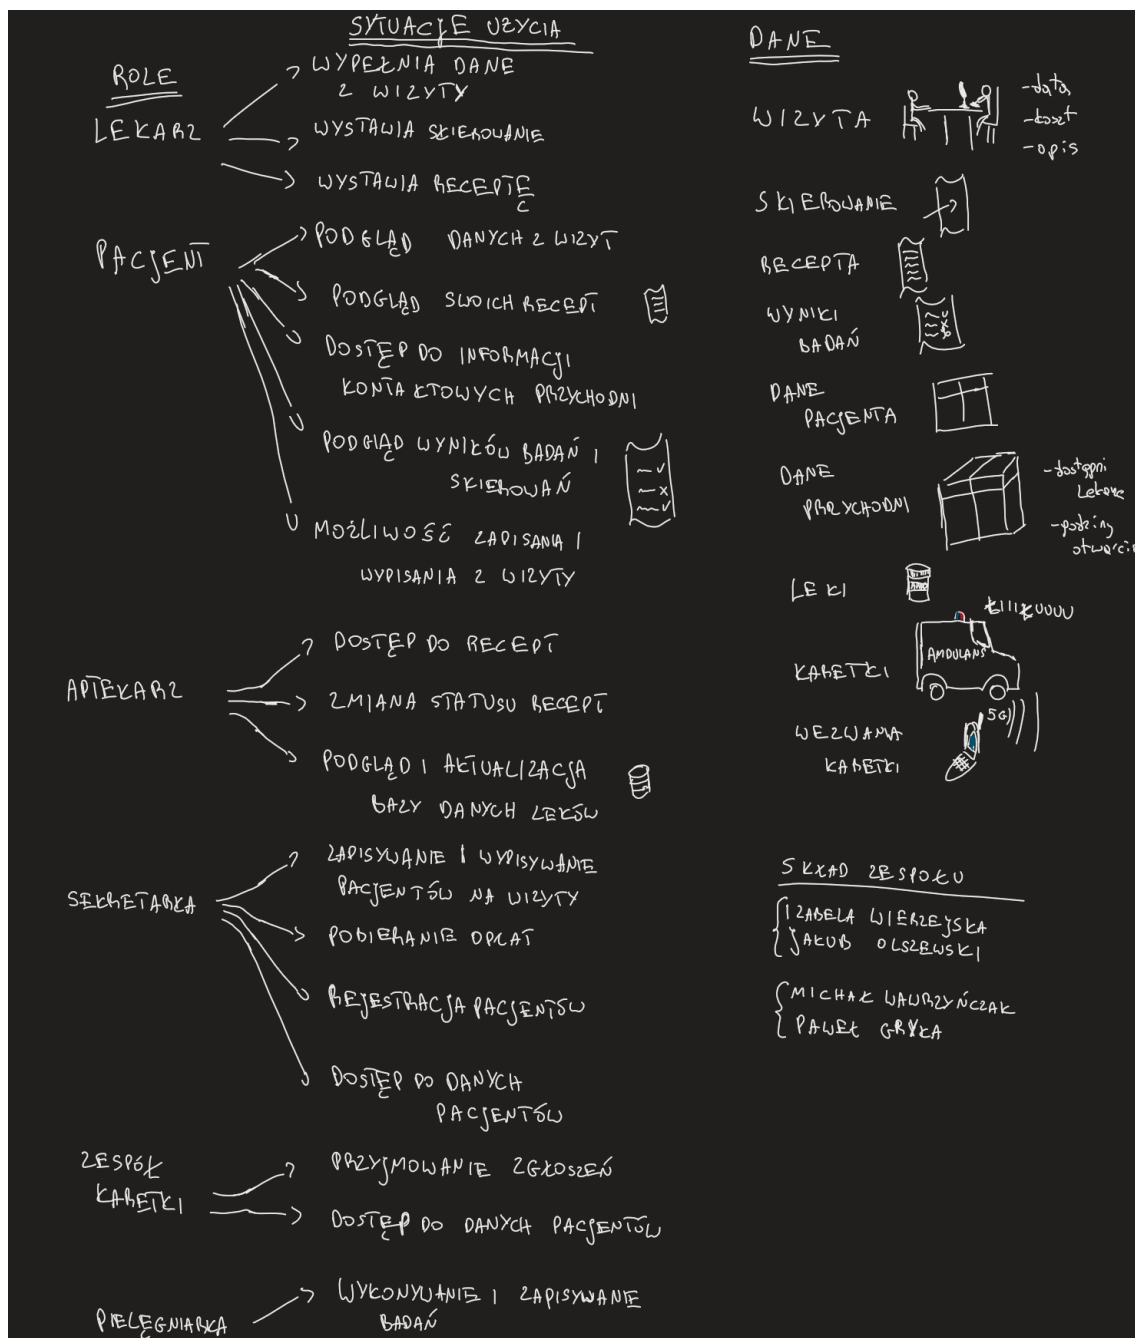 SYTUACJE UŻYCIA
ROLE
LEKARZ
WYPEŁNIA DANE
Z WIZYTY
WYSTAWIA SKIEROWANIE
WYSTAWIA RECEPTĘ
PACJENT
PODGLĄD DANYCH Z WIZYT
PODGLĄD SWOICH RECEPT
DOSTĘP DO INFORMACJI
KONTAKTOWYCH PRZYCHODNI
PODGLĄD WYNIKÓW BADAŃ I
SKIEROWAŃ
MOŻLIWOŚĆ ZAPISANIA I
WYPISANIA Z WIZYTY
APTEKARZ
DOSTĘP DO RECEPT
ZMIANA STATUSU RECEPT
PODGLĄD I AKTUALIZACJA
BAZY DANYCH LEKÓW
SEKRETARKA
ZAPISYWANIE I WYPISYWANIE
PACJENTÓW NA WIZYTY
POBIERANIE OPŁAT
REJESTRACJA PACJENTÓW
DOSTĘP DO DANYCH
PACJENTÓW
ZESPÓŁ
KARETKI
PRZYJMOWANIE ZGŁOSZEŃ
DOSTĘP DO DANYCH PACJENTÓW
PIELĘGNIARKA
WYKONYWANIE I ZAPISYWANIE
BADAŃ
DANE
WIZYTA
-data
-koszt
-opis
SKIEROWANIE
RECEPTA
WYNIKI
BADAŃ
DANE
PACJENTA
DANE
PRZYCHODNI
-dostępni
Lekarze
-godziny
otwarcia
LEKI
KARETKI
AMBULANS
WEZWANIA
KARETKI
5G
SKŁAD ZESPOŁU
IZABELA WIERZEJSKA
JAKUB OLSZEWSKI
MICHAŁ WAWRZYŃCZAK
PAWEŁ GRYKA